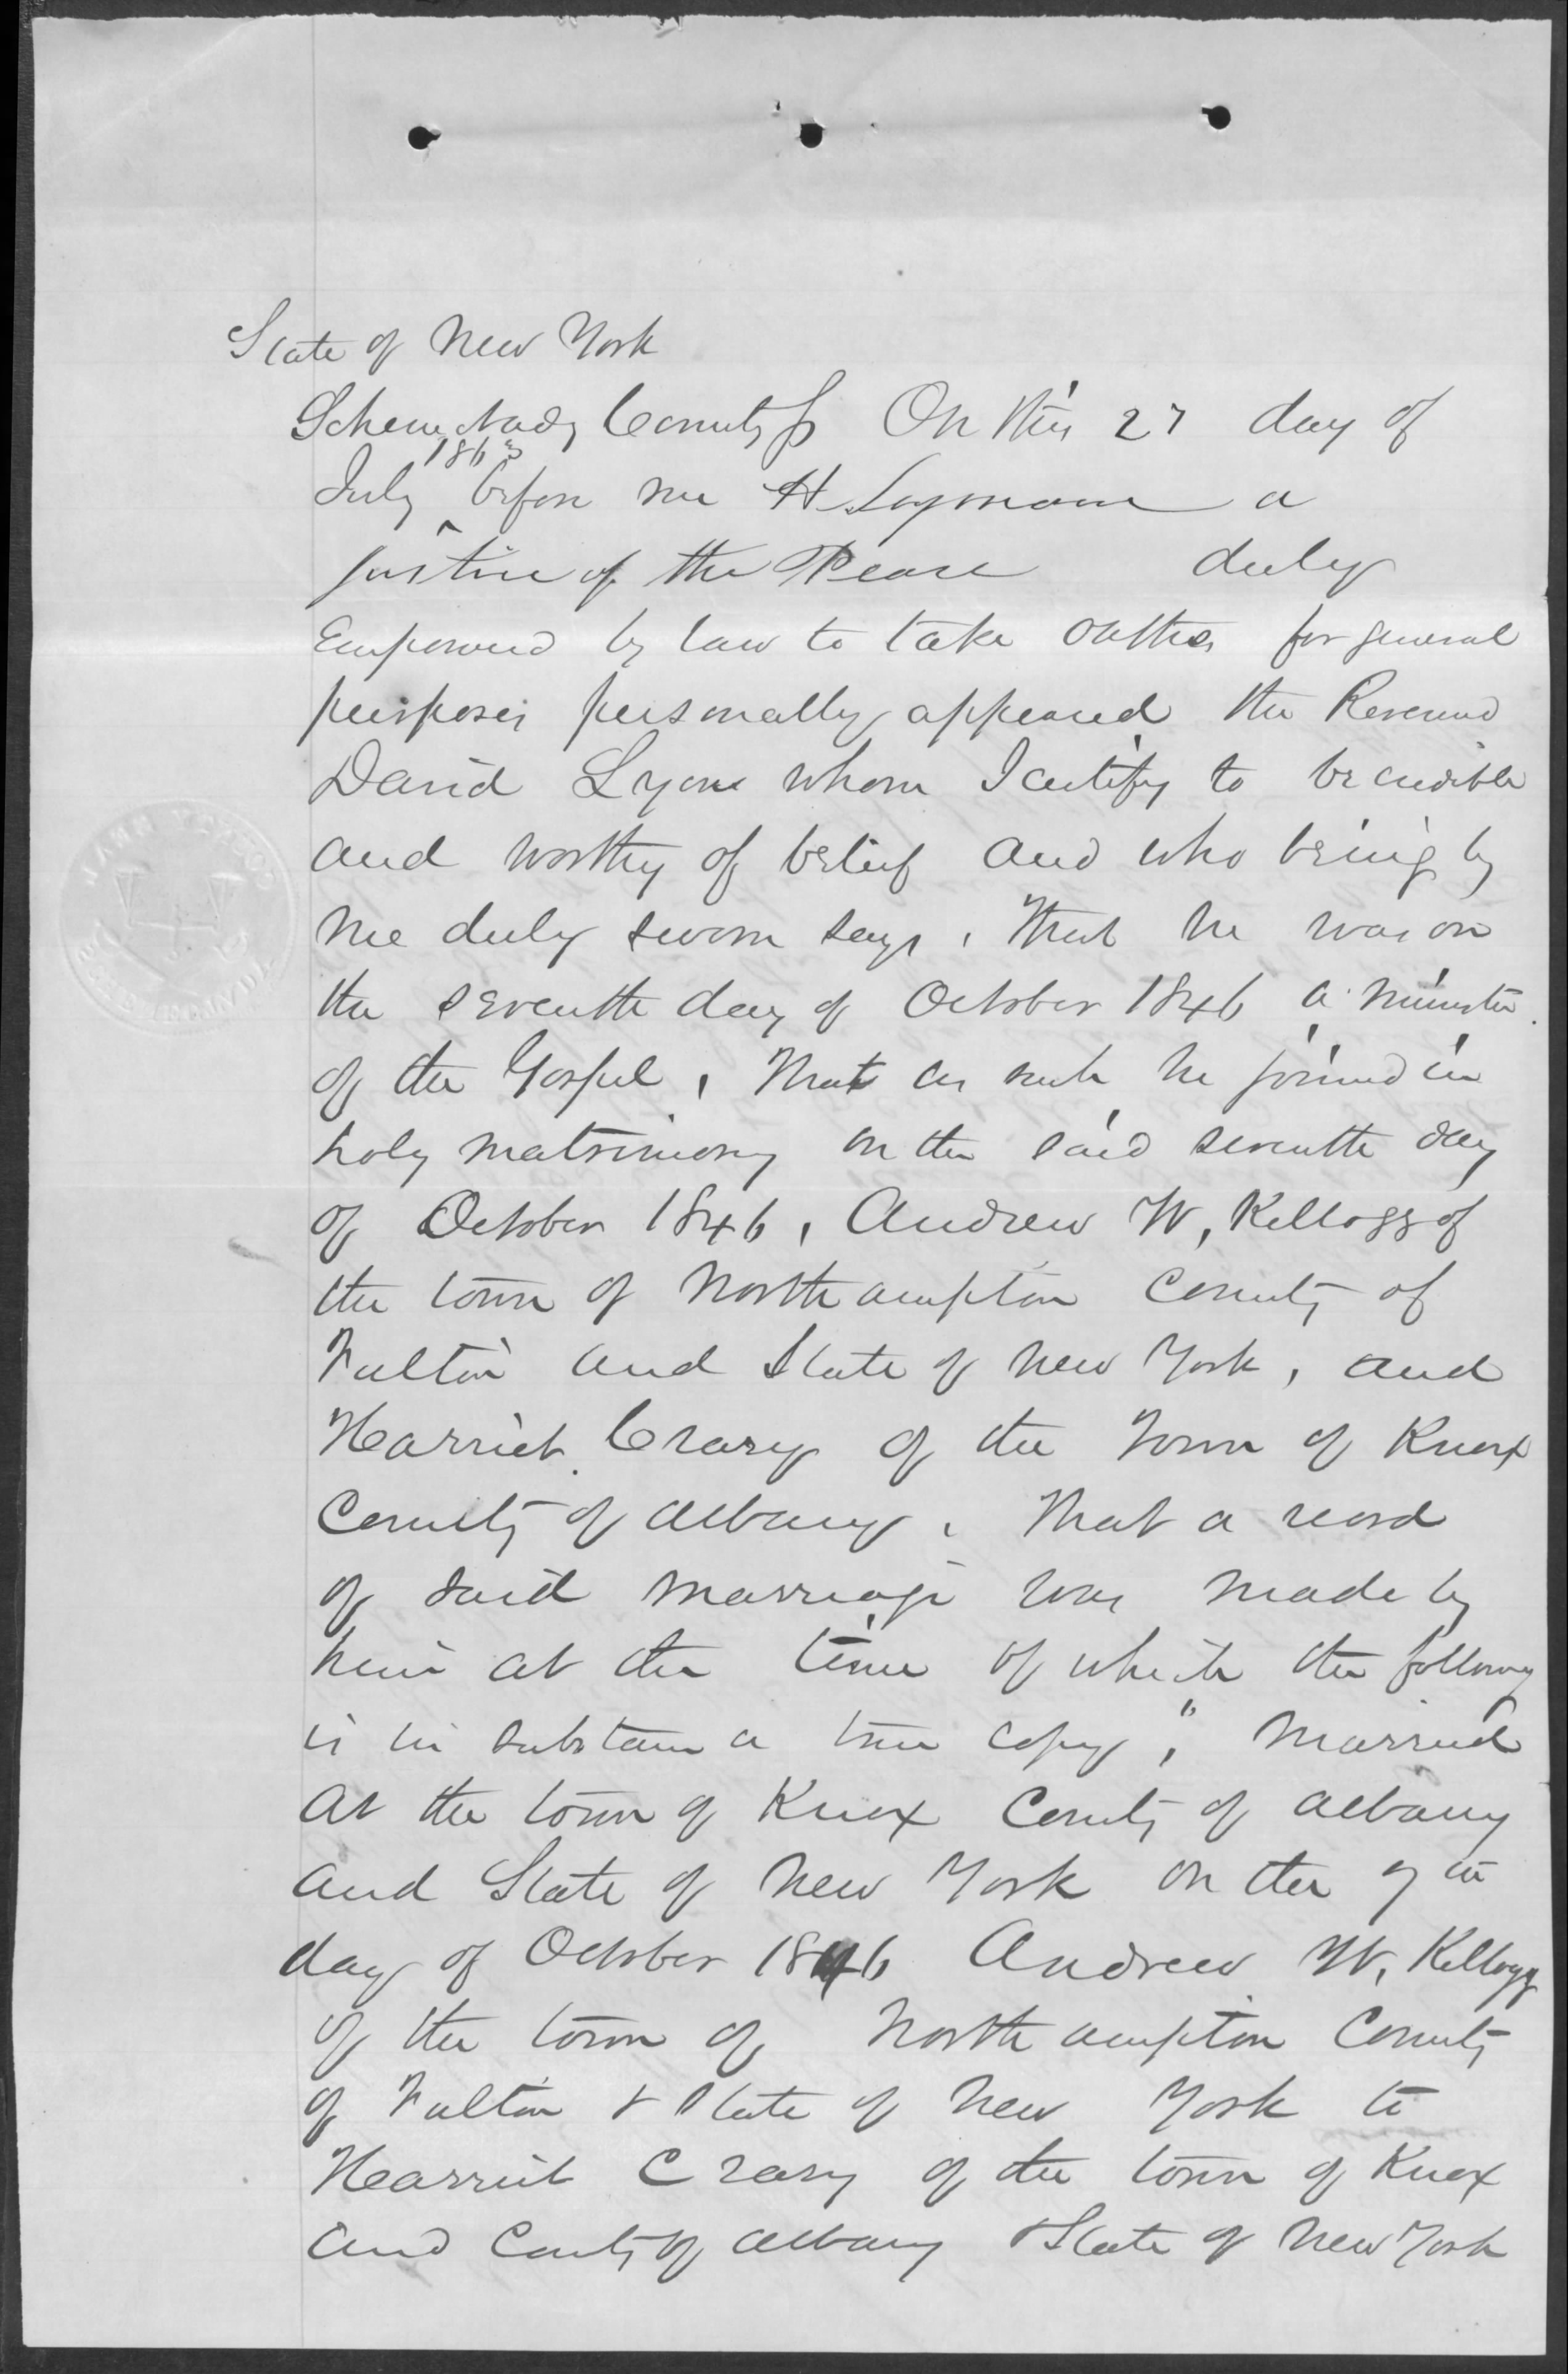 State of New York
Schenectady County ss On this 27 day of
July 1863 before me H
Justice of the Peace duly
Empowered by law to take oaths for general
purposes personally appeared the Reverend
David Lyons whom I certify to be credible
and worthy of belief and who being by
me duly sworn says, that he was on
the seventh day of October 1846 a minister
of the Gospel, that as such he joined in
holy matrimony on the said seventh day
of October 1846, Andrew W, Kellogg of
the town of Northampton County of
Fulton and State of New York, and
Harriet Crary of the Town of Knox
County of Albany. That a record
of said marriage was made by
him at the time of which the following
is in substance a true copy, " Married
At the town of Knox County of Albany
and State of New York on the 7th
day of October 1846 Andrew W, Kellogg
of the town of Northampton County
of Fulton & State of New York to
Harriet Crary of the town of Knox
and County of Albany & State of New York